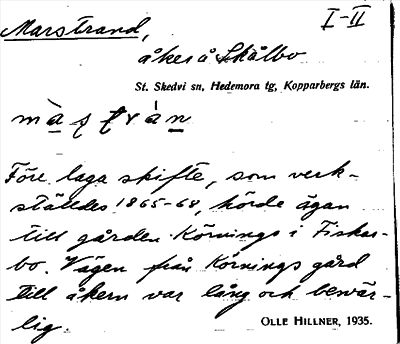 Marstrand, I-II
åker å Skålbo
St. Skedvi sn, Hedemora tg, Kopparbergs län.
màștrán
Före laga skifte, som verk-
ställdes 1865-68, hörde ägan
till gården Körnings i Fiskar-
bo. Vägen från Körnings gård
till åkern var lång och besvär-
lig.
OLLE HILLNER, 1935.